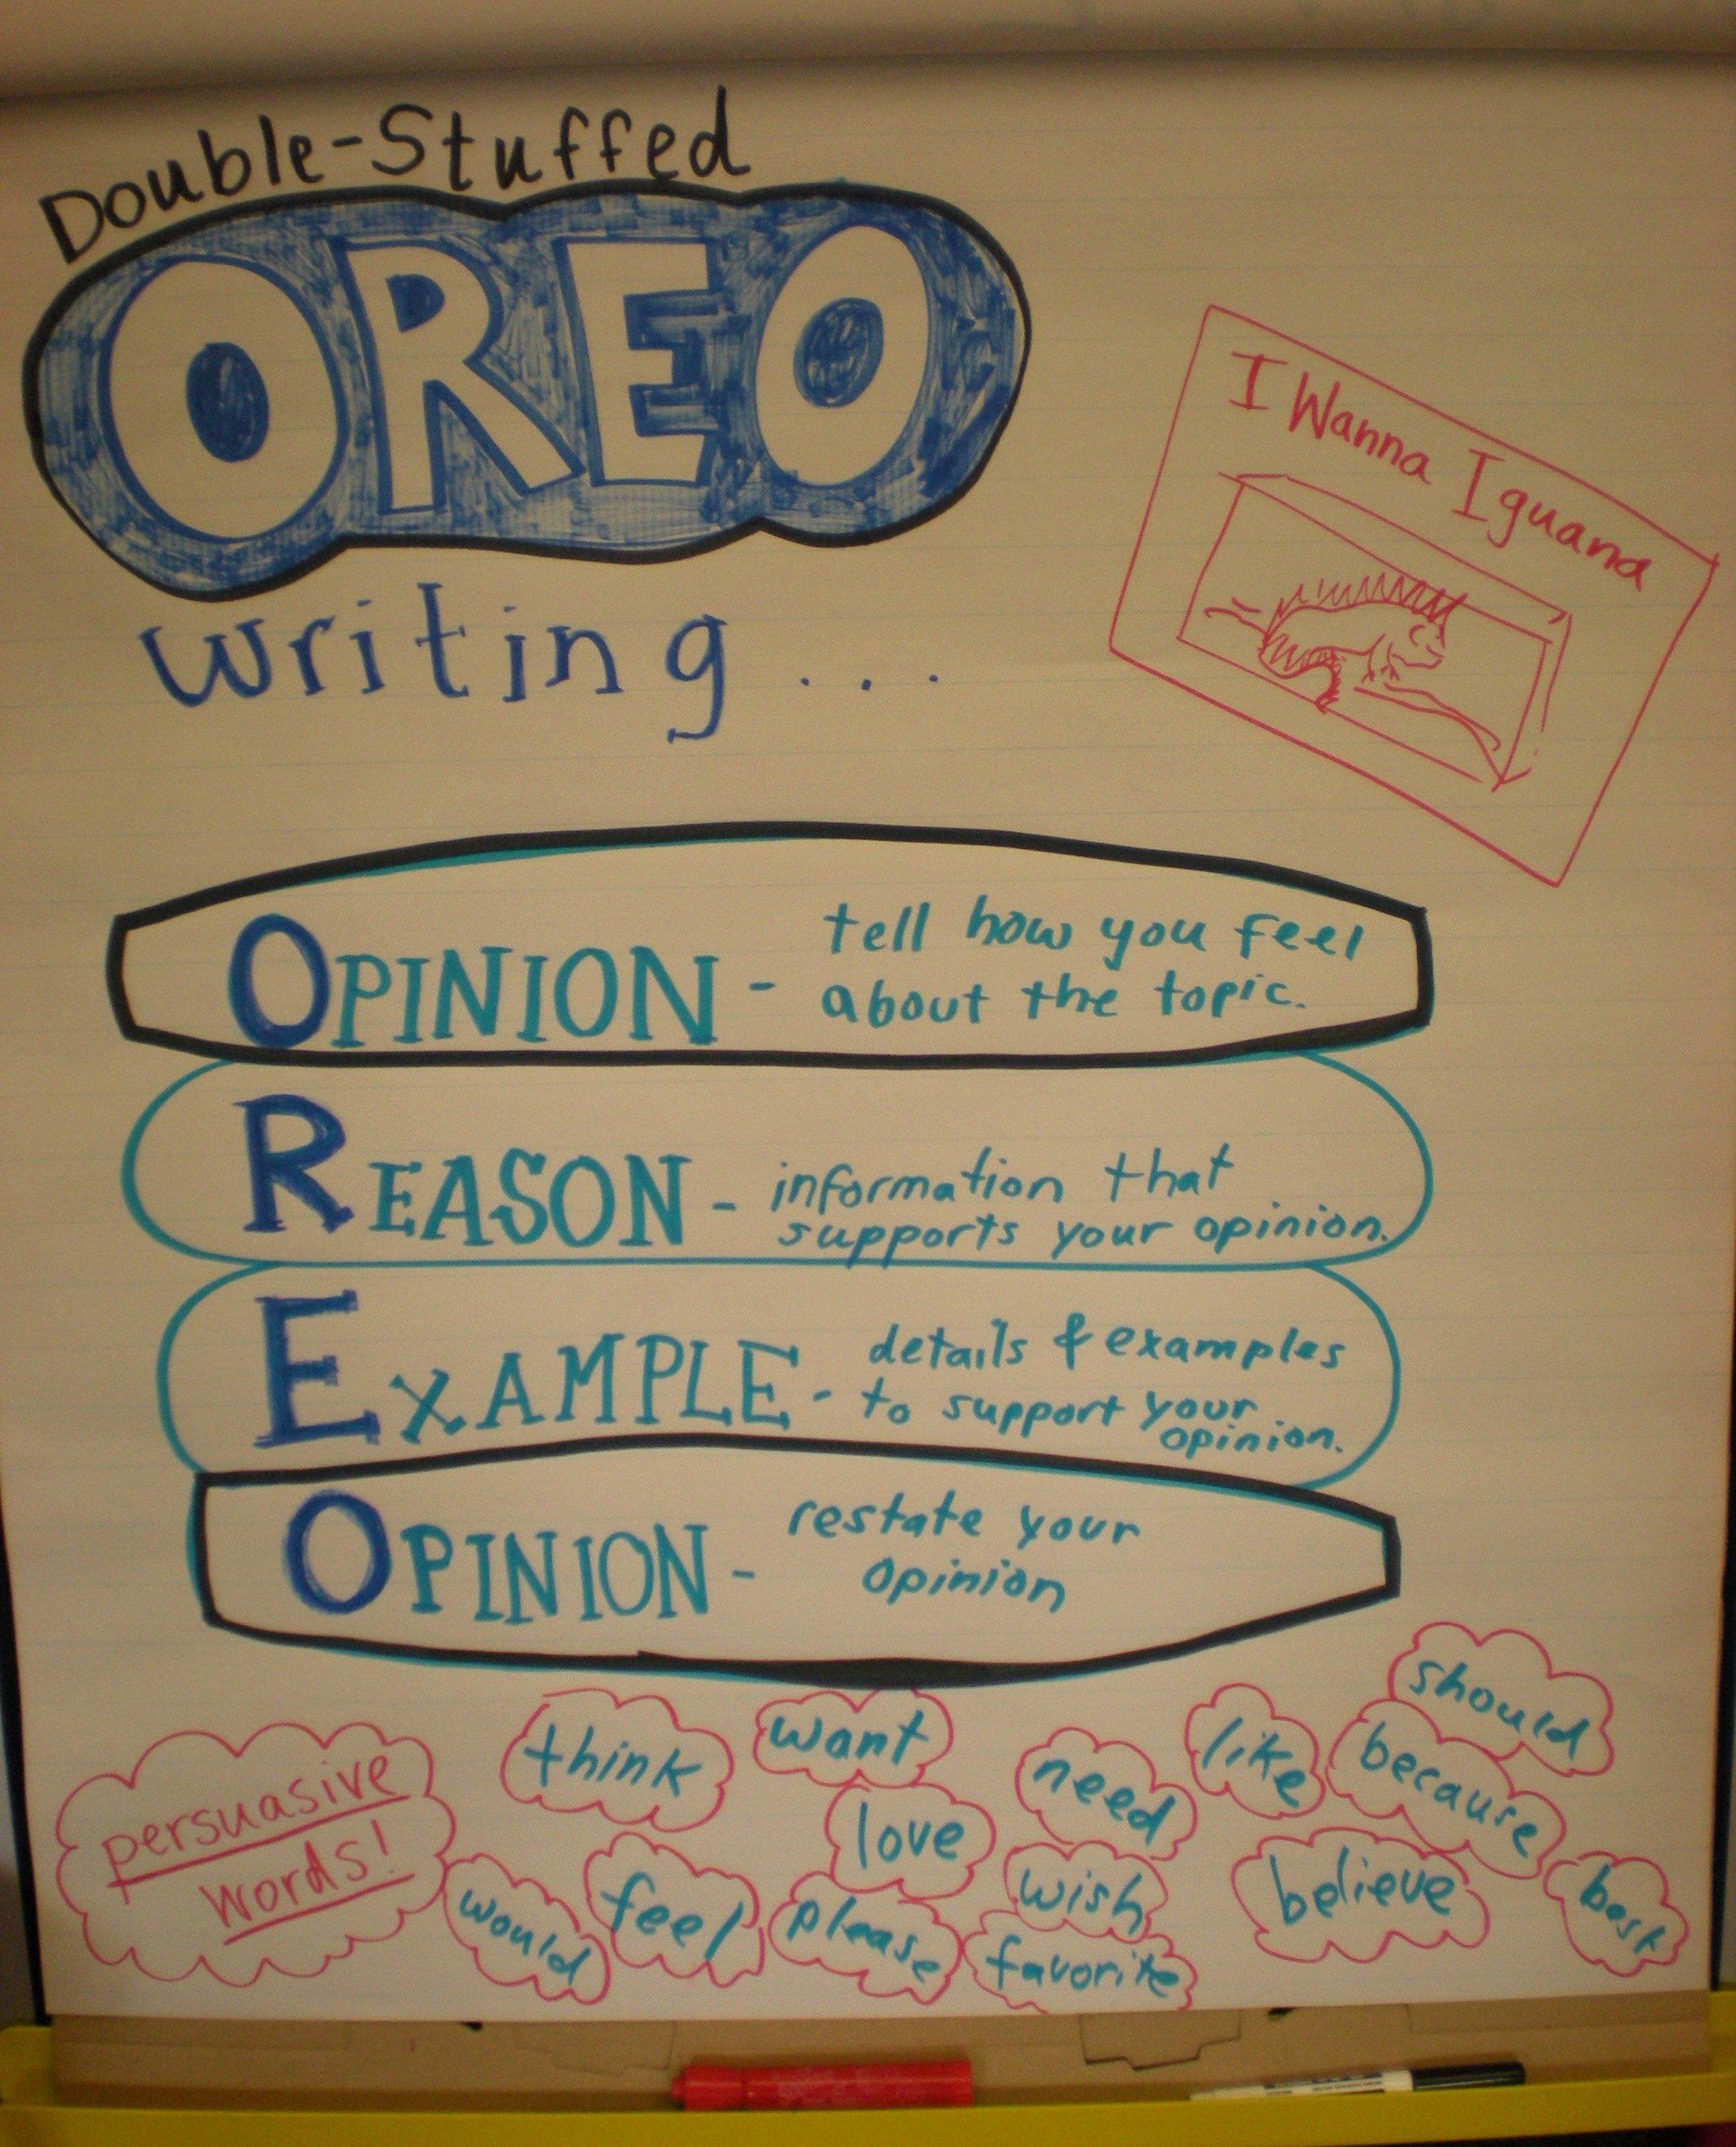 Double-Stuffed
OREO
writing...
I Wanna Iguana
OPINION - tell how you feel
about the topic.
REASON - information that
supports your opinion.
EXAMPLE - details & examples
to support your
opinion.
OPINION - restate your
opinion
persuasive
words!
think
want
need
like
should
because
love
would
feel
please
wish
favorite
believe
best